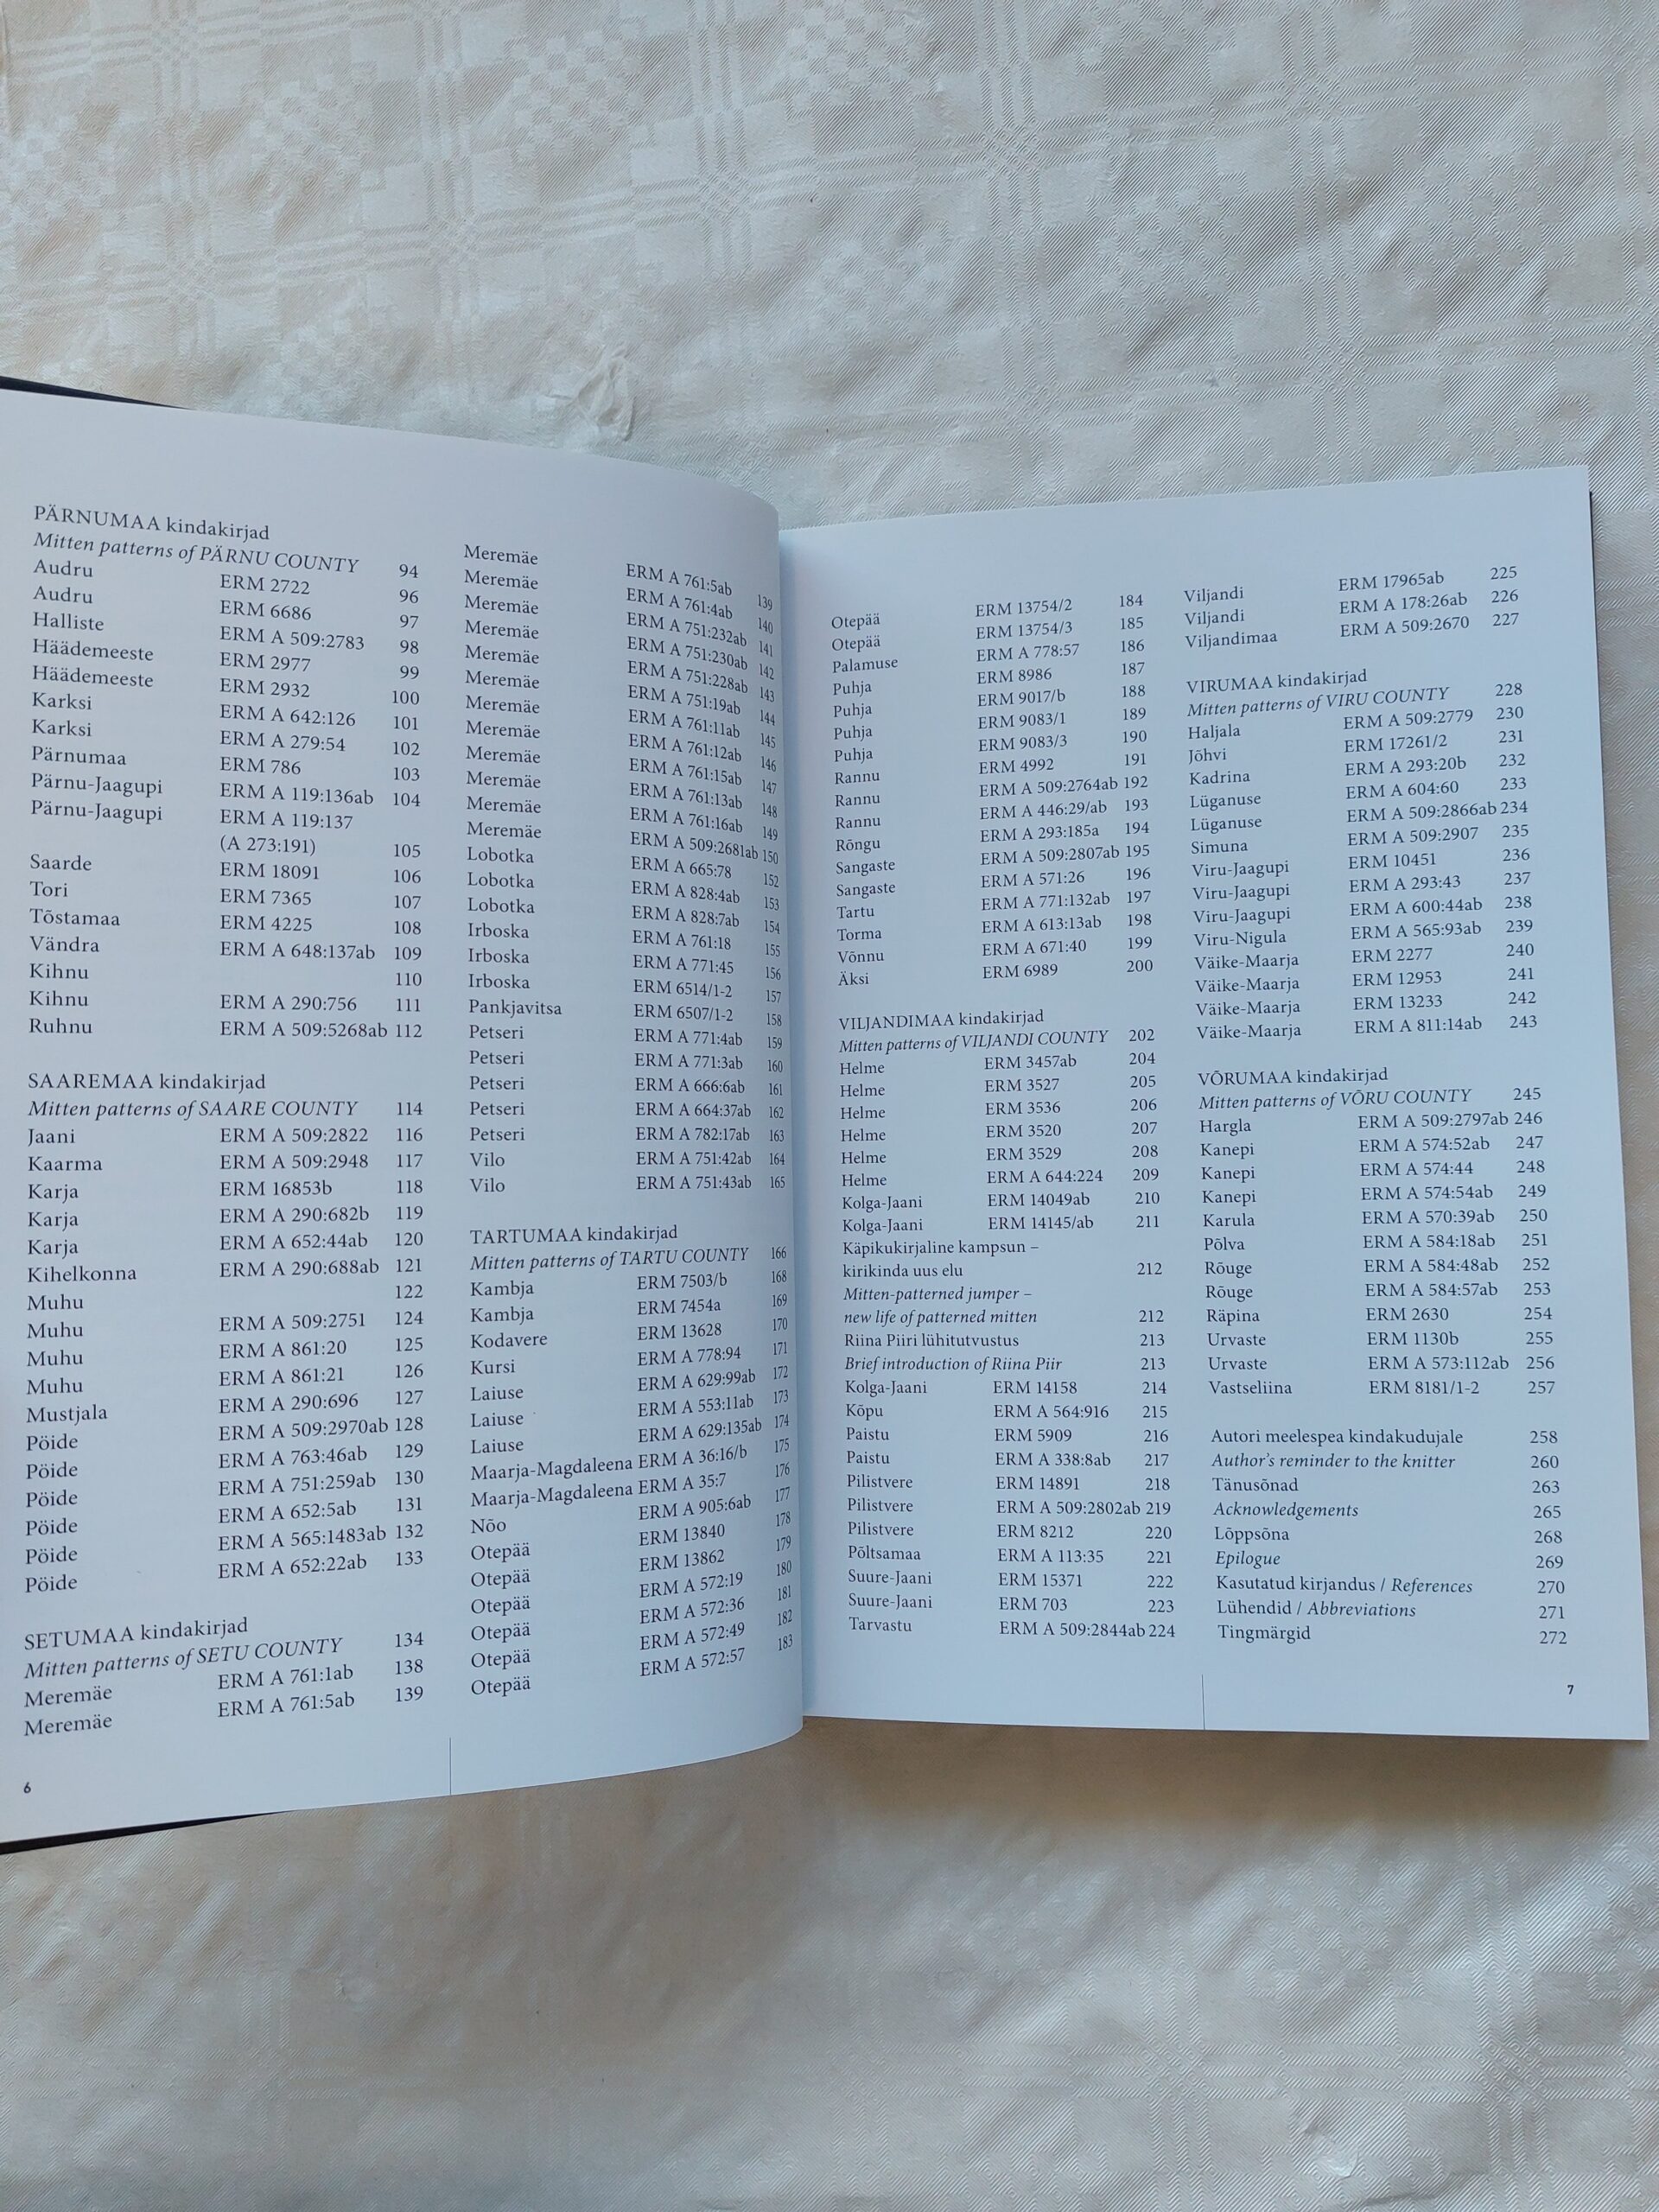 PÄRNUMAA kindakirjad
Mitten patterns of PÄRNU COUNTY 94
Audru ERM 2722 96
Audru ERM 6686 97
Halliste ERM A 509:2783 98
Häädemeeste ERM 2977 99
Häädemeeste ERM 2932 100
Karksi ERM A 642:126 101
Karksi ERM A 279:54 102
Pärnumaa ERM 786 103
Pärnu-Jaagupi ERM A 119:136ab 104
Pärnu-Jaagupi ERM A 119:137
(A 273:191) 105
Saarde ERM 18091 106
Tori ERM 7365 107
Tõstamaa ERM 4225 108
Vändra ERM A 648:137ab 109
Kihnu 110
Kihnu ERM A 290:756 111
Ruhnu ERM A 509:5268ab 112
SAAREMAA kindakirjad
Mitten patterns of SAARE COUNTY 114
Jaani ERM A 509:2822 116
Kaarma ERM A 509:2948 117
Karja ERM 16853b 118
Karja ERM A 290:682b 119
Karja ERM A 652:44ab 120
Kihelkonna ERM A 290:688ab 121
Muhu 122
Muhu ERM A 509:2751 124
Muhu ERM A 861:20 125
Muhu ERM A 861:21 126
Mustjala ERM A 290:696 127
Pöide ERM A 509:2970ab 128
Pöide ERM A 763:46ab 129
Pöide ERM A 751:259ab 130
Pöide ERM A 652:5ab 131
Pöide ERM A 565:1483ab 132
Pöide ERM A 652:22ab 133
SETUMAA kindakirjad
Mitten patterns of SETU COUNTY 134
Meremäe ERM A 761:1ab 138
Meremäe ERM A 761:5ab 139
6
Meremäe ERM A 761:5ab 139
Meremäe ERM A 761:4ab 140
Meremäe ERM A 751:232ab 141
Meremäe ERM A 751:230ab 142
Meremäe ERM A 751:228ab 143
Meremäe ERM A 751:19ab 144
Meremäe ERM A 761:11ab 145
Meremäe ERM A 761:12ab 146
Meremäe ERM A 761:15ab 147
Meremäe ERM A 761:13ab 148
Meremäe ERM A 761:16ab 149
Meremäe ERM A 509:2681ab 150
Lobotka ERM A 665:78 152
Lobotka ERM A 828:4ab 153
Lobotka ERM A 828:7ab 154
Irboska ERM A 761:18 155
Irboska ERM A 771:45 156
Irboska ERM 6514/1-2 157
Pankjavitsa ERM 6507/1-2 158
Petseri ERM A 771:4ab 159
Petseri ERM A 771:3ab 160
Petseri ERM A 666:6ab 161
Petseri ERM A 664:37ab 162
Petseri ERM A 782:17ab 163
Vilo ERM A 751:42ab 164
Vilo ERM A 751:43ab 165
TARTUMAA kindakirjad
Mitten patterns of TARTU COUNTY 166
Kambja ERM 7503/b 168
Kambja ERM 7454a 169
Kodavere ERM 13628 170
Kursi ERM A 778:94 171
Laiuse ERM A 629:99ab 172
Laiuse ERM A 553:11ab 173
Laiuse ERM A 629:135ab 174
Maarja-Magdaleena ERM A 36:16/b 175
Maarja-Magdaleena ERM A 35:7 176
Nõo ERM A 905:6ab 177
Otepää ERM 13840 178
Otepää ERM 13862 179
Otepää ERM A 572:19 180
Otepää ERM A 572:36 181
Otepää ERM A 572:49 182
Otepää ERM A 572:57 183
Otepää ERM 13754/2 184
Otepää ERM 13754/3 185
Palamuse ERM A 778:57 186
Puhja ERM 8986 187
Puhja ERM 9017/b 188
Puhja ERM 9083/1 189
Puhja ERM 9083/3 190
Rannu ERM 4992 191
Rannu ERM A 509:2764ab 192
Rannu ERM A 446:29/ab 193
Rõngu ERM A 293:185a 194
Sangaste ERM A 509:2807ab 195
Sangaste ERM A 571:26 196
Tartu ERM A 771:132ab 197
Torma ERM A 613:13ab 198
Võnnu ERM A 671:40 199
Äksi ERM 6989 200
VILJANDIMAA kindakirjad
Mitten patterns of VILJANDI COUNTY 202
Helme ERM 3457ab 204
Helme ERM 3527 205
Helme ERM 3536 206
Helme ERM 3520 207
Helme ERM 3529 208
Helme ERM A 644:224 209
Kolga-Jaani ERM 14049ab 210
Kolga-Jaani ERM 14145/ab 211
Käpikukirjaline kampsun –
kirikinda uus elu 212
Mitten-patterned jumper –
new life of patterned mitten 212
Riina Piiri lühitutvustus 213
Brief introduction of Riina Piir 213
Kolga-Jaani ERM 14158 214
Kõpu ERM A 564:916 215
Paistu ERM 5909 216
Paistu ERM A 338:8ab 217
Pilistvere ERM 14891 218
Pilistvere ERM A 509:2802ab 219
Pilistvere ERM 8212 220
Põltsamaa ERM A 113:35 221
Suure-Jaani ERM 15371 222
Suure-Jaani ERM 703 223
Tarvastu ERM A 509:2844ab 224
Viljandi ERM 17965ab 225
Viljandi ERM A 178:26ab 226
Viljandimaa ERM A 509:2670 227
VIRUMAA kindakirjad
Mitten patterns of VIRU COUNTY 228
Haljala ERM A 509:2779 230
Jõhvi ERM 17261/2 231
Kadrina ERM A 293:20b 232
Lüganuse ERM A 604:60 233
Lüganuse ERM A 509:2866ab 234
Simuna ERM A 509:2907 235
Viru-Jaagupi ERM 10451 236
Viru-Jaagupi ERM A 293:43 237
Viru-Jaagupi ERM A 600:44ab 238
Viru-Nigula ERM A 565:93ab 239
Väike-Maarja ERM 2277 240
Väike-Maarja ERM 12953 241
Väike-Maarja ERM 13233 242
Väike-Maarja ERM A 811:14ab 243
VÕRUMAA kindakirjad
Mitten patterns of VÕRU COUNTY 245
Hargla ERM A 509:2797ab 246
Kanepi ERM A 574:52ab 247
Kanepi ERM A 574:44 248
Kanepi ERM A 574:54ab 249
Karula ERM A 570:39ab 250
Põlva ERM A 584:18ab 251
Rõuge ERM A 584:48ab 252
Rõuge ERM A 584:57ab 253
Räpina ERM 2630 254
Urvaste ERM 1130b 255
Urvaste ERM A 573:112ab 256
Vastseliina ERM 8181/1-2 257
Autori meelespea kindakudujale 258
Author's reminder to the knitter 260
Tänusõnad 263
Acknowledgements 265
Lõppsõna 268
Epilogue 269
Kasutatud kirjandus / References 270
Lühendid / Abbreviations 271
Tingmärgid 272
7